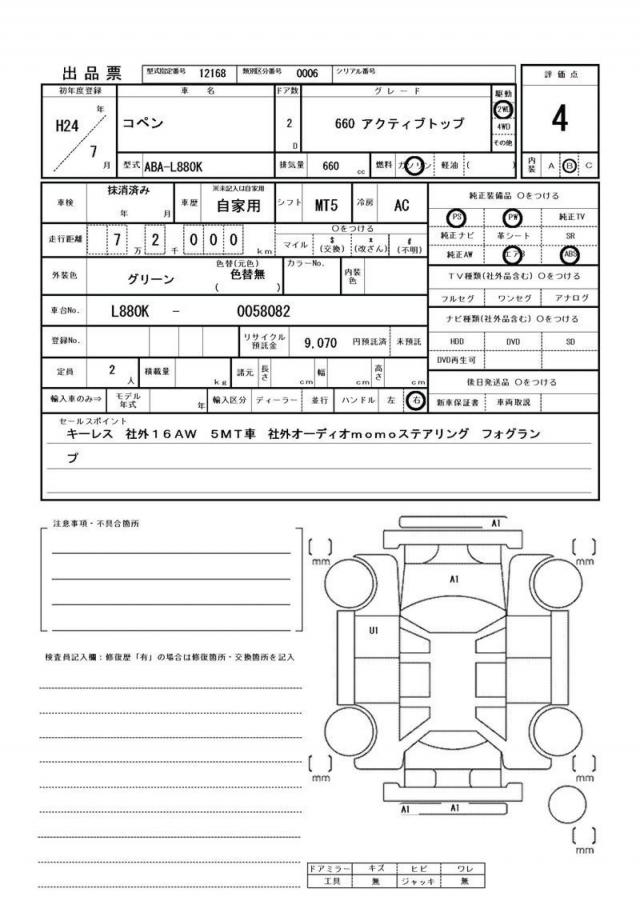 出品票 型式指定番号 12168 類別区分番号 0006 シリアル番号
初年度登録 車名 ドア数 グレード 駆動 評価点
H24 年 コペン 2 660 アクティブトップ 2WD 4
7 月 D 4WD
その他
型式 ABA-L880K 排気量 660 cc 燃料 ガソリン 軽油 ( ) 内装 A B C
車検 抹消済み 年 月 車歴 ※未記入は自家用 自家用 シフト MT5 冷房 AC 純正装備品 〇をつける
PS PW 純正TV
走行距離 7 万 2 千 0 0 0 km 〇をつける マイル $ (交換) x (改ざん) # (不明) 純正ナビ 革シート SR
純正AW エアB ABS
外装色 グリーン 色替(元色) 色替無 ( ) カラーNo. 内装色 TV種類(社外品含む) 〇をつける
フルセグ ワンセグ アナログ
車台No. L880K - 0058082 ナビ種類(社外品含む) 〇をつける
登録No. リサイクル預託金 9,070 円預託済 未預託 HDD DVD SD
DVD再生可
定員 2 人 積載量 kg 諸元 長さ cm 幅 cm 高さ cm 後日発送品 〇をつける
輸入車のみ⇒ モデル年式 年 輸入区分 ディーラー 並行 ハンドル 左 右 新車保証書 車両取説
セールスポイント
キーレス 社外16AW 5MT車 社外オーディオmomoステアリング フォグラン
プ
注意事項・不具合箇所
A1
mm mm
A1
U1
検査員記入欄:修復歴「有」の場合は修復箇所・交換箇所を記入
mm mm
A1 A1
mm
ドアミラー キズ ヒビ ワレ
工具 無 ジャッキ 無